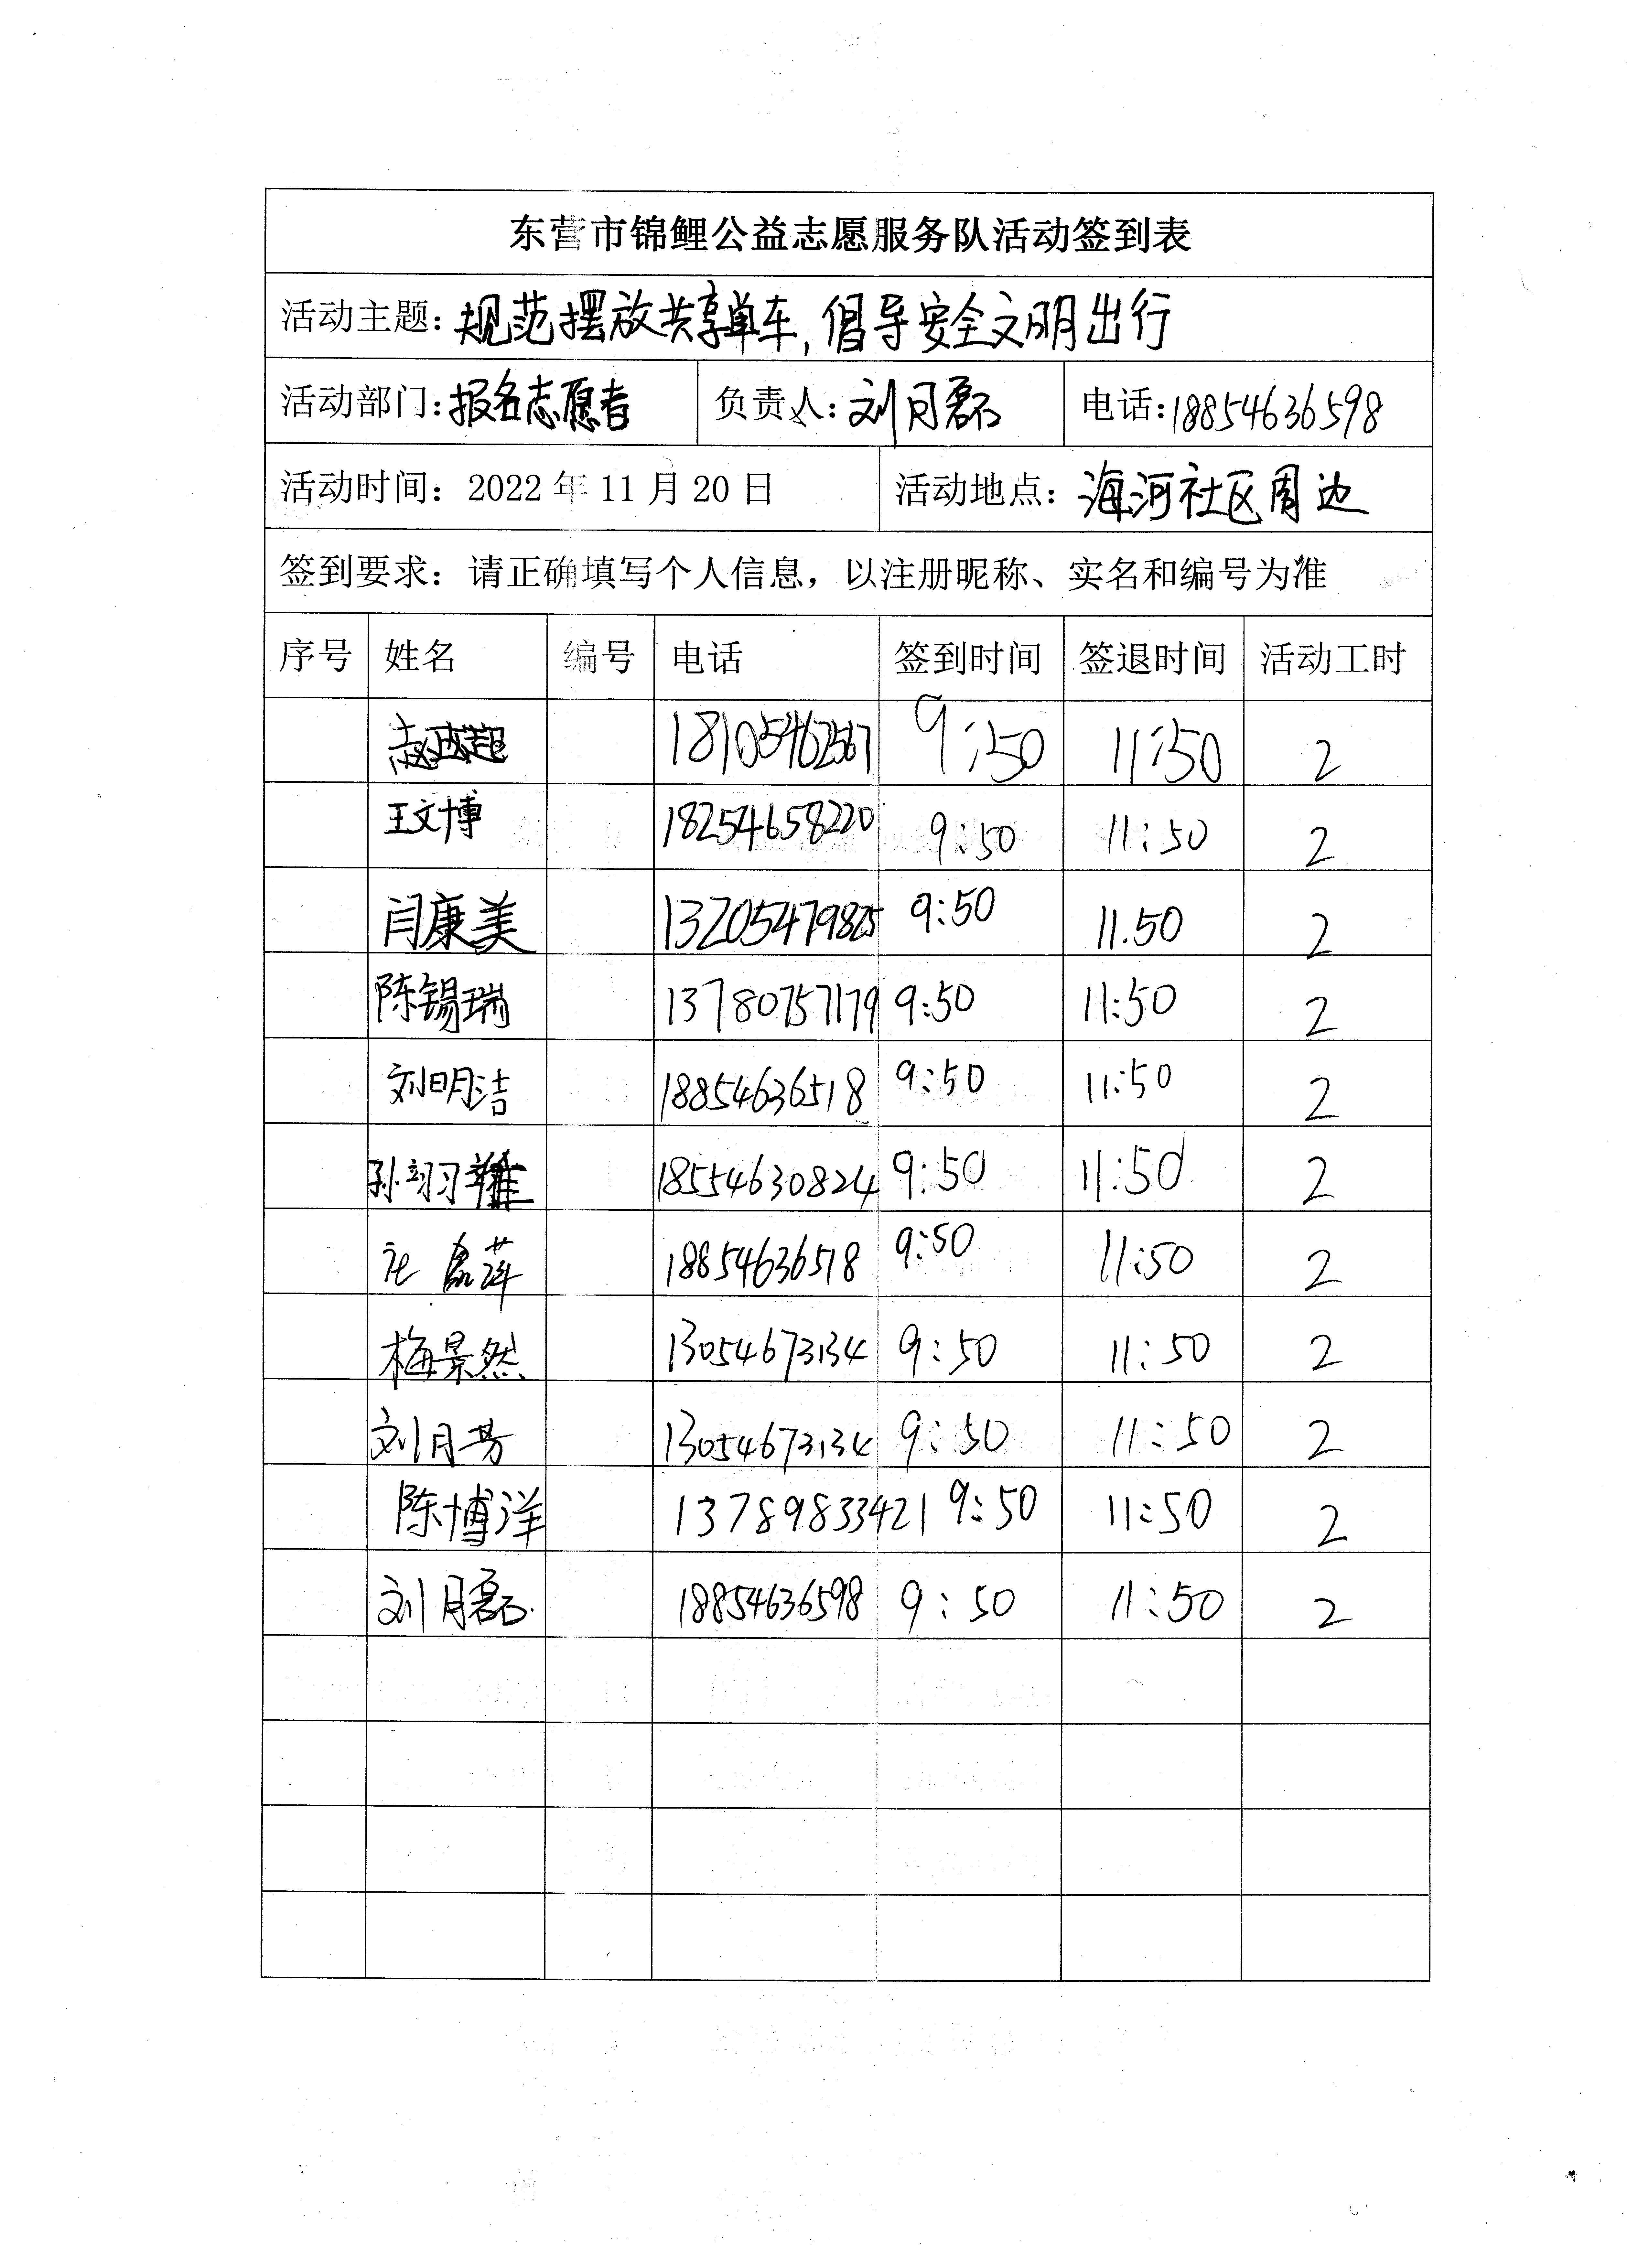 东营市锦鲤公益志愿服务队活动签到表
活动主题：规范摆放共享单车，倡导安全文明出行
活动部门：报名志愿者 负责人：刘月磊 电话：18854636598
活动时间：2022年11月20日 活动地点：海河社区周边
签到要求：请正确填写个人信息，以注册昵称、实名和编号为准
序号 姓名 编号 电话 签到时间 签退时间 活动工时
18105462567 9:50 11:50 2
王文博 18254658220 9:50 11:50 2
闫康美 13205479825 9:50 11.50 2
陈锡瑞 13780757179 9:50 11:50 2
刘明洁 18854636518 9:50 11:50 2
孙翊 18554630824 9:50 11:50 2
18854636518 9:50 11:50 2
梅景然 13054673134 9:50 11:50 2
刘月芳 13054673134 9:50 11:50 2
陈博洋 13789833421 9:50 11:50 2
刘月磊 18854636598 9:50 11:50 2